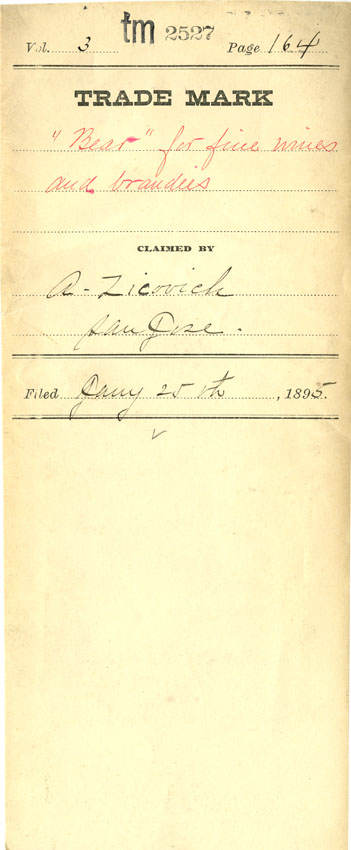 Vol. 3 tm 2527 Page 164
TRADE MARK
"Bear" for fine wines
and brandies
CLAIMED BY
A. Zicovich
San Jose.
Filed Jany 25th, 1895.